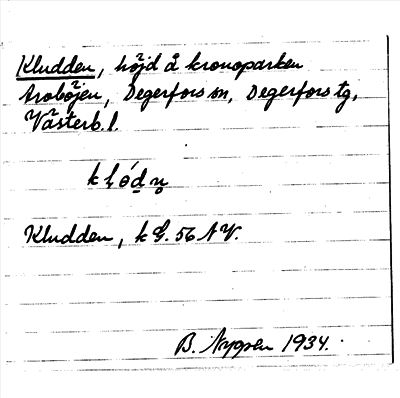 Kludden, höjd å kronoparken
Degerfors sn, Degerfors tg,
Västerb. l.
Kludden, k G. 56 N V.
B. Nygren 1934.